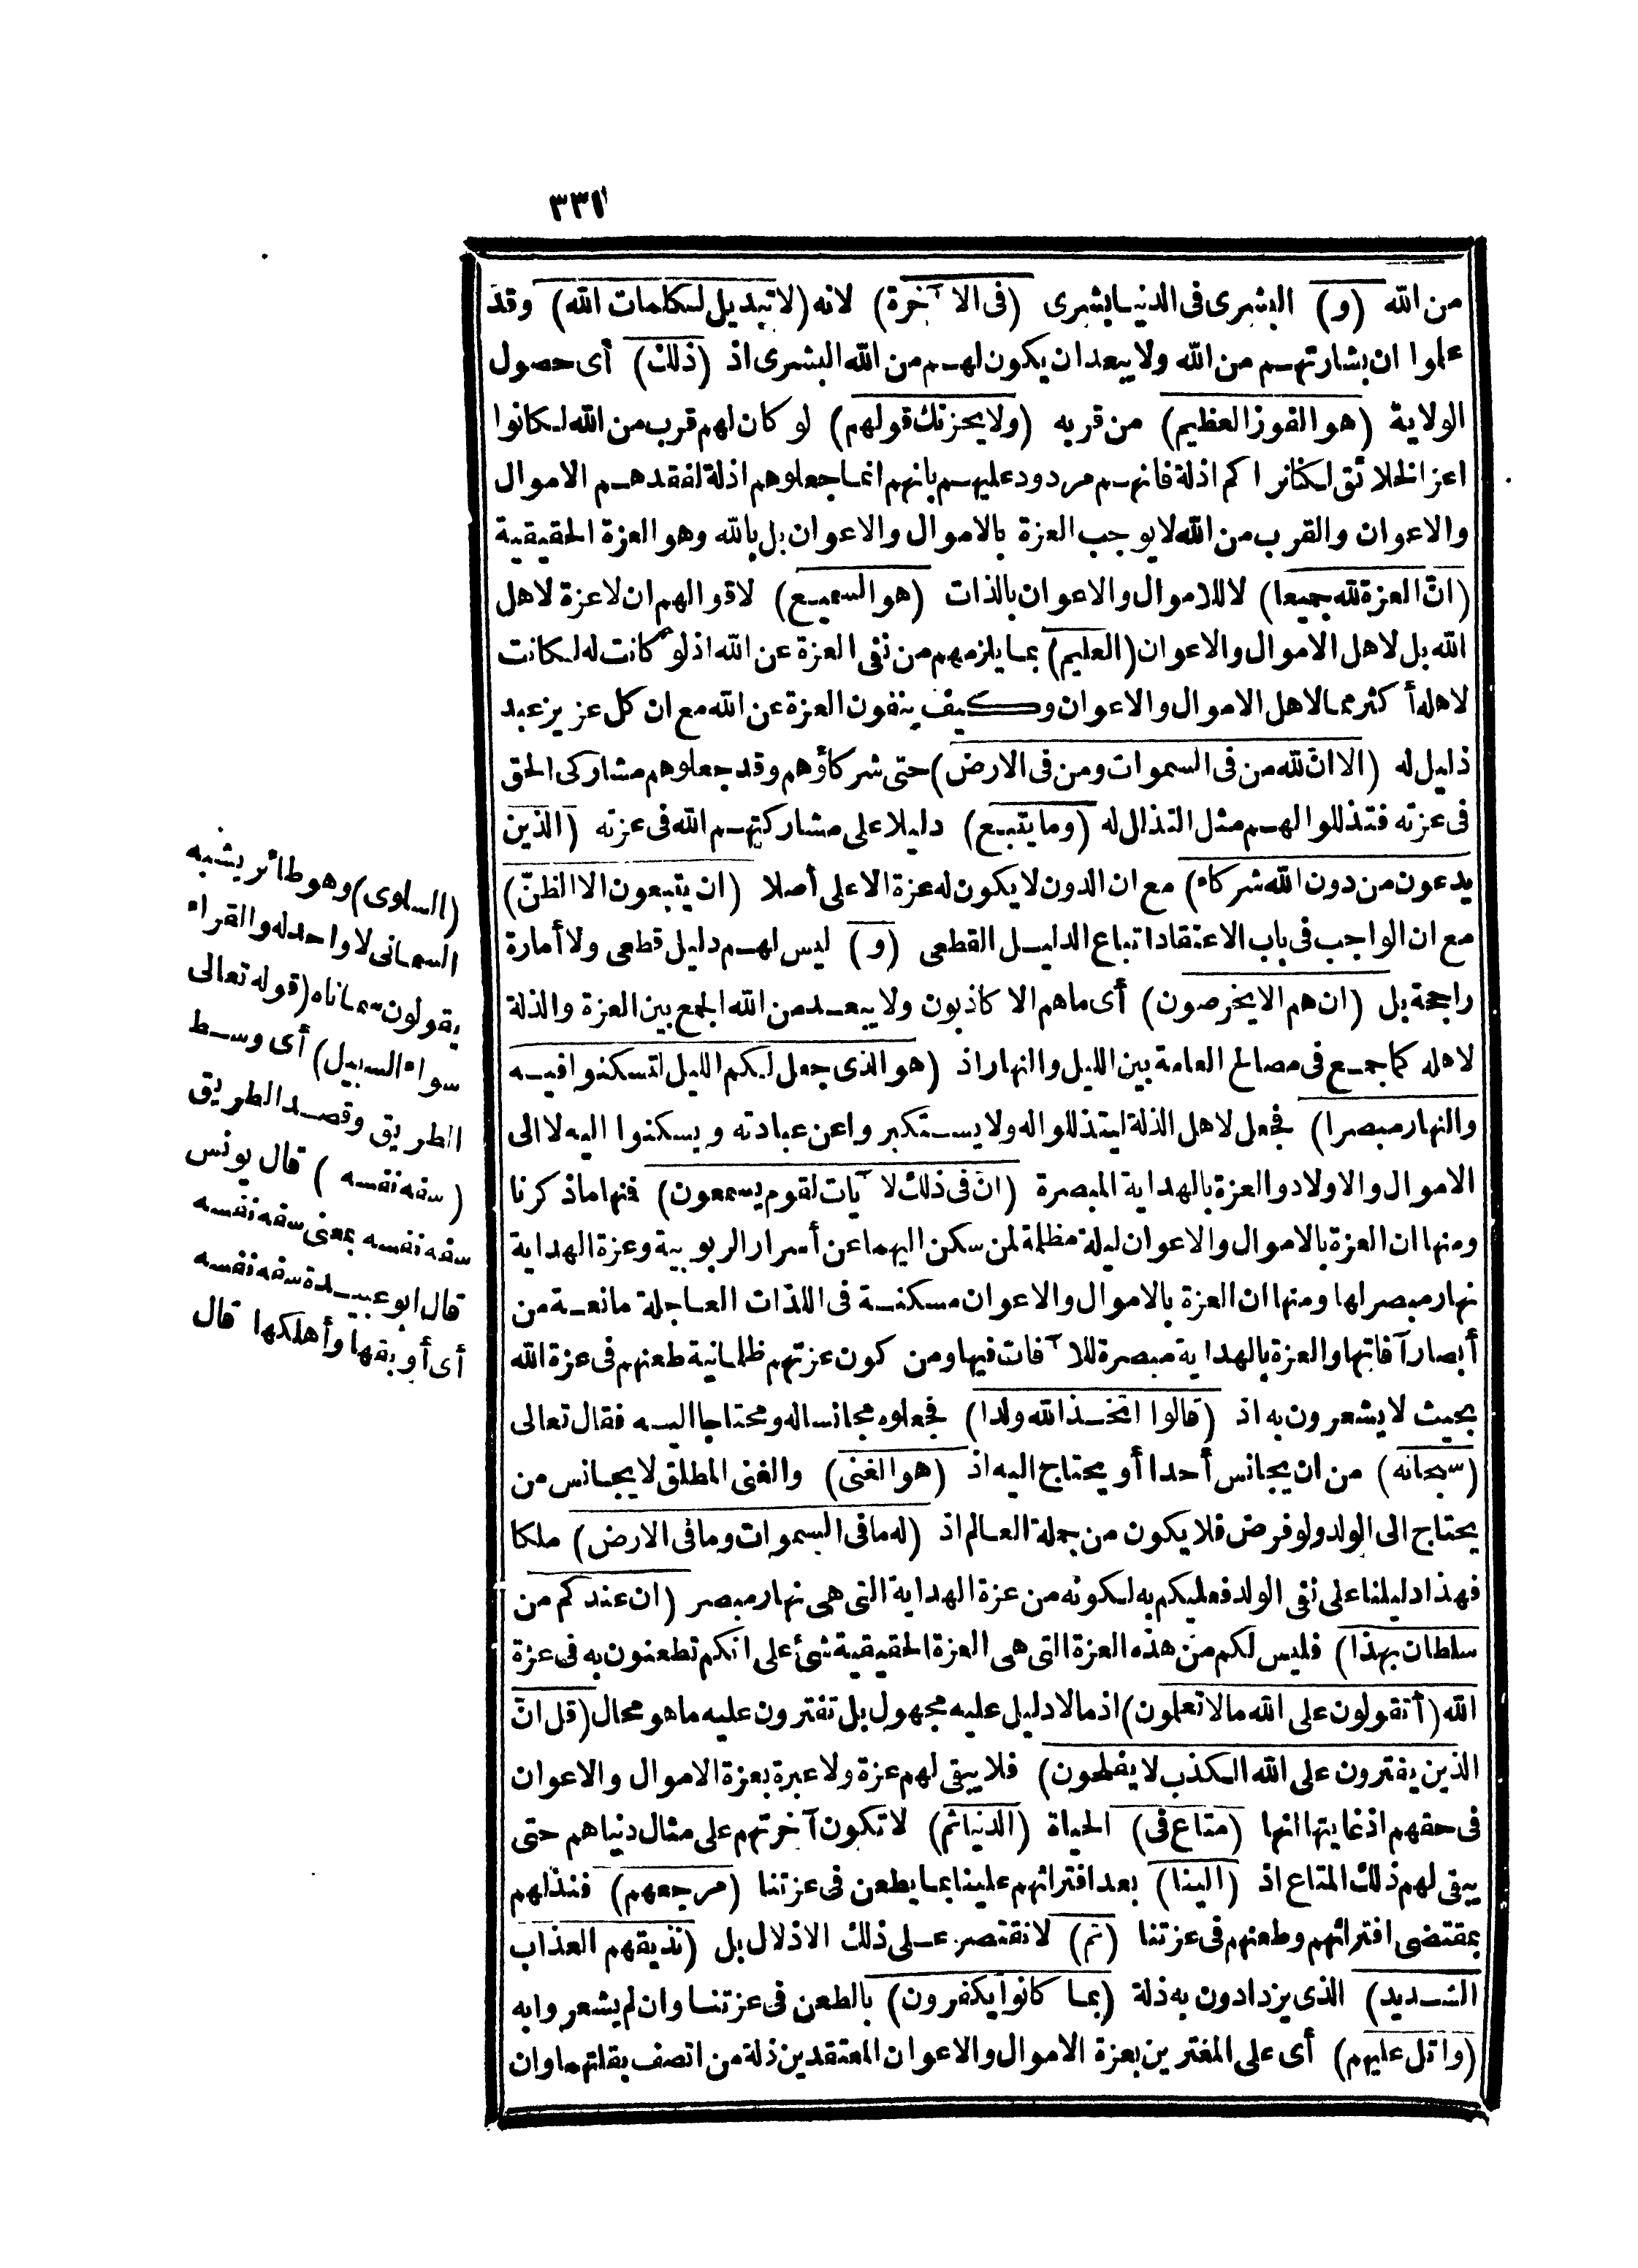 ٣٣١
من الله (و) البشرى فى الدنيا بشرى (فى الآخرة) لانه (لا تبديل لكلمات الله) وقد
علموا ان بشارتهم من الله ولا يبعد ان يكون لهم من الله البشرى اذ (ذلك) أى حصول
الولاية (هو الفوز العظيم) من قربه (ولا يحزنك قولهم) لو كان لهم قرب من الله لكانوا
اعز الخلائق لكانوا كم اذلة فانهم مردود عليهم بانهم انما جعلوهم اذلة لفقدهم الاموال
والاعوان والقرب من الله لا يوجب العزة بالاموال والاعوان بل بالله وهو العزة الحقيقية
(ان العزة لله جميعا) لا للاموال والاعوان بالذات (هو السميع) لاقوالهم ان لا عزة لاهل
الله بل لاهل الاموال والاعوان (العليم) بما يلزمهم من نفى العزة عن الله اذ لو كانت له لكانت
لاهله أكثر مما لاهل الاموال والاعوان وكيف ينفون العزة عن الله مع ان كل عزيز عبد
ذليل له (الا ان لله من فى السموات ومن فى الارض) حتى شركاؤهم وقد جعلوهم مشاركى الحق
فى عزته فتذللوا لهم مثل التذلل له (وما يتبع) دليلا على مشاركتهم الله فى عزته (الذين
يدعون من دون الله شركاء) مع ان الدون لا يكون له عزة الاعلى أصلا (ان يتبعون الا الظنّ)
مع ان الواجب فى باب الاعتقاد اتباع الدليل القطعى (و) ليس لهم دليل قطعى ولا أمارة
راجحة بل (ان هم الا يخرصون) أى ما هم الا كاذبون ولا يبعد من الله الجمع بين العزة والذلة
لاهله كما جمع فى مصالح العامة بين الليل والنهار اذ (هو الذى جعل لكم الليل لتسكنوا فيه
والنهار مبصرا) فجعل لاهل الذلة ليتذللوا له ولا يستكبروا عن عبادته ويسكنوا اليه لا الى
الاموال والاولاد والعزة بالهداية المبصرة (ان فى ذلك لآيات لقوم يسمعون) فمنها ما ذكرنا
ومنها ان العزة بالاموال والاعوان ليلة مظلمة لمن سكن اليهما عن أسرار الربوبية وعزة الهداية
نهار مبصر لها ومنها ان العزة بالاموال والاعوان مسكنة فى اللذات العاجلة مانعة من
أبصار آفاتها والعزة بالهداية مبصرة للآفات فيها ومن كون عزتهم ظلمانية طعنهم فى عزة الله
بحيث لا يشعرون به اذ (قالوا اتخذ الله ولدا) فجعلوه مجانسا له ومحتاجا اليه فقال تعالى
(سبحانه) من ان يجانس أحدا أو يحتاج اليه اذ (هو الغنى) والغنى المطلق لا يجانس من
يحتاج الى الولد ولو فرض فلا يكون من جملة العالم اذ (له ما فى السموات وما فى الارض) ملكا
فهذا دليلنا على نفى الولد فعليكم به لكونه من عزة الهداية التى هى نهار مبصر (ان عندكم من
سلطان بهذا) فليس لكم من هذه العزة التى هى العزة الحقيقية شئ على انكم تطعنون به فى عزة
الله (أتقولون على الله ما لا تعلمون) اذ ما لا دليل عليه مجهول بل تفترون عليه ما هو محال (قل ان
الذين يفترون على الله الكذب لا يفلحون) فلا يبقى لهم عزة ولا عبرة بعزة الاموال والاعوان
فى حقهم اذ غايتها انها (متاع فى) الحياة (الدنيا ثم) لا تكون آخرتهم على مثال دنياهم حتى
يبقى لهم ذلك المتاع اذ (الينا) بعد افترائهم علينا بما يطعن فى عزتنا (مرجعهم) فنذلهم
بمقتضى افترائهم وطعنهم فى عزتنا (ثم) لا نقتصر على ذلك الاذلال بل (نذيقهم العذاب
الشديد) الذى يزدادون به ذلة (بما كانوا يكفرون) بالطعن فى عزتنا وان لم يشعروا به
(واتل عليهم) أى على المغترين بعزة الاموال والاعوان المعتقدين ذلة من اتصف بقلتهما وان
(السلوى) وهو طائر يشبه
السمانى لا واحد له والقراء
يقولون سماناه (قوله تعالى
سواء السبيل) أى وسط
الطريق وقصد الطريق
(سفه نفسه) قال يونس
سفه نفسه بمعنى سفه نفسه
قال ابو عبيدة سفه نفسه
أى أوبقها وأهلكها قال